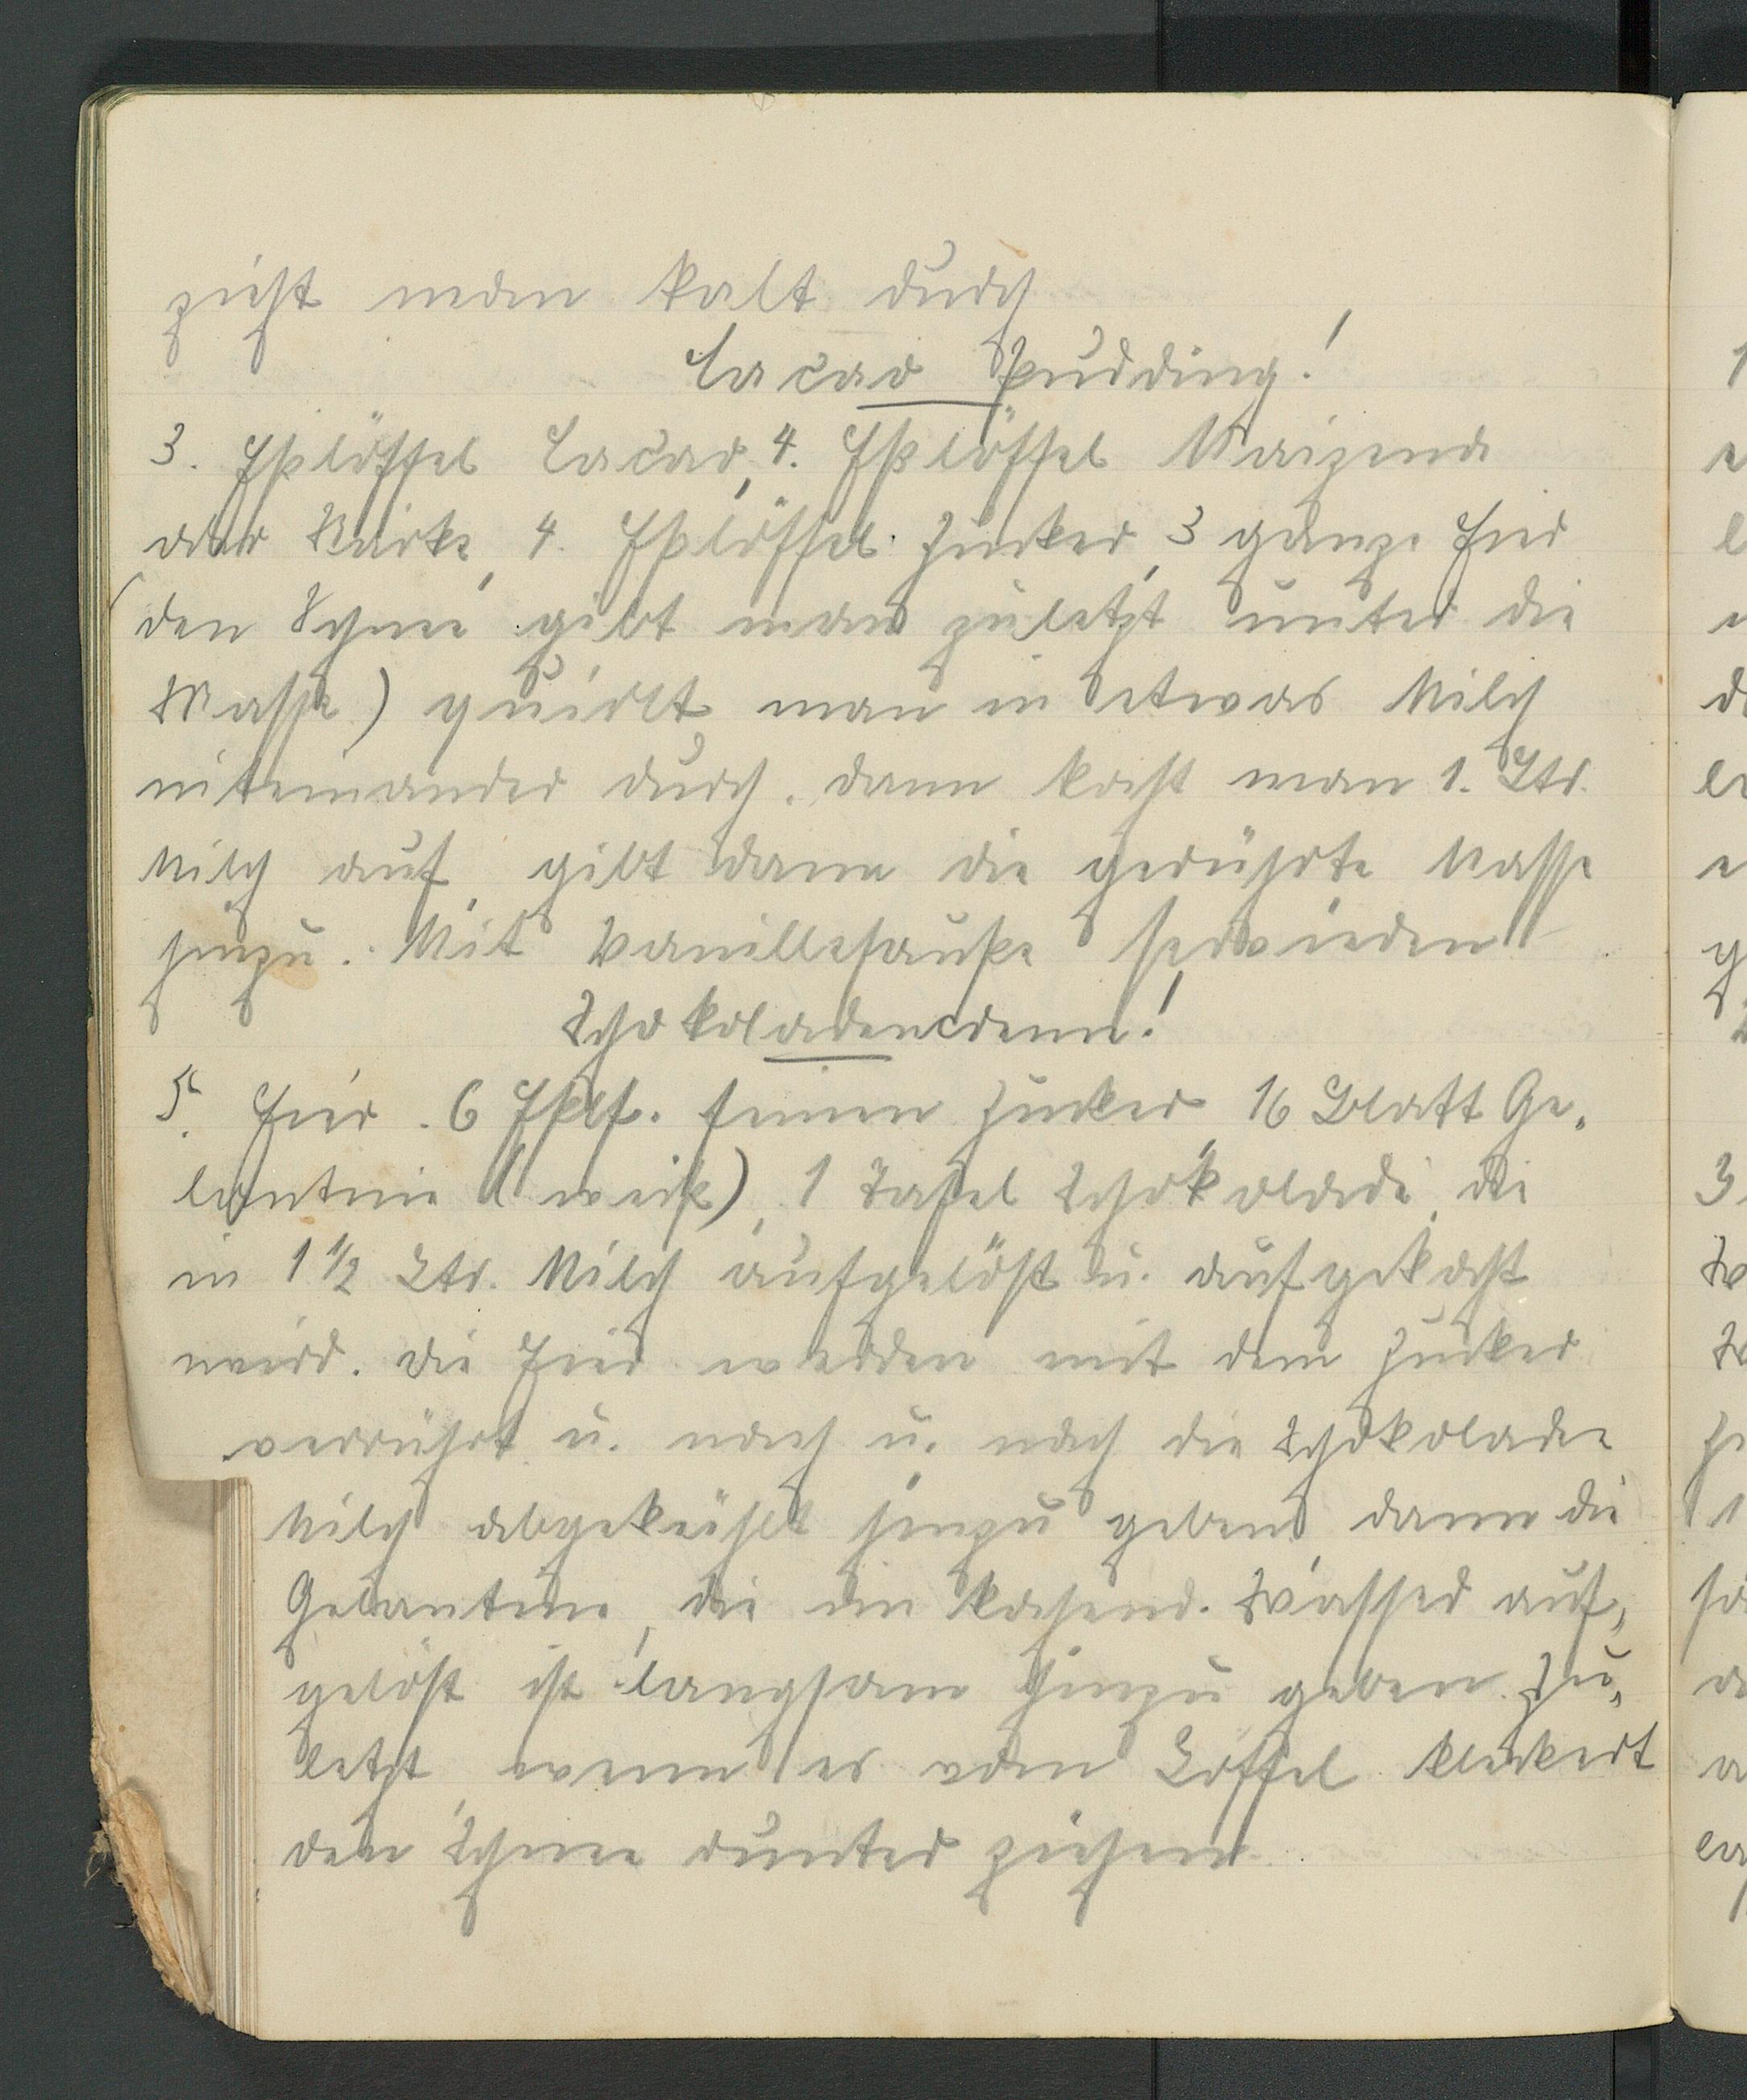 zieht man kalt durch
Cacao Pudding!
3. Eßlöffel Cacao, 4. Eßlöffel Maizena
oder Stärke, 4. Eßlöffel Zucker, 3 ganze Eier
(den Schnee gibt man zuletzt unter die
Masse) quirlt man in etwas Milch
miteinander durch. dann kocht man 1. Ltr.
Milch auf, gibt dann die gerührte Masse
hinzu. Mit Vanillesauße servieren
Schokoladencrem!
5. Eier. 6 Eßlf. feinen Zucker, 16 Blatt Ge-
lantine (weiß), 1 Tafel Schokolade, die
in 1 1/2 Ltr. Milch aufgelöst u. aufgekocht
wird. die Eier werden mit dem Zucker
verrührt u. nach u. nach die Schokolade
Milch abgekühlt hinzu geben, dann die
Gelantine, die in kochend. Wasser auf-
gelöst ist langsam hinzu geben. Zu-
letzt, wenn es vom Löffel kleckert
den Schnee runter ziehen.